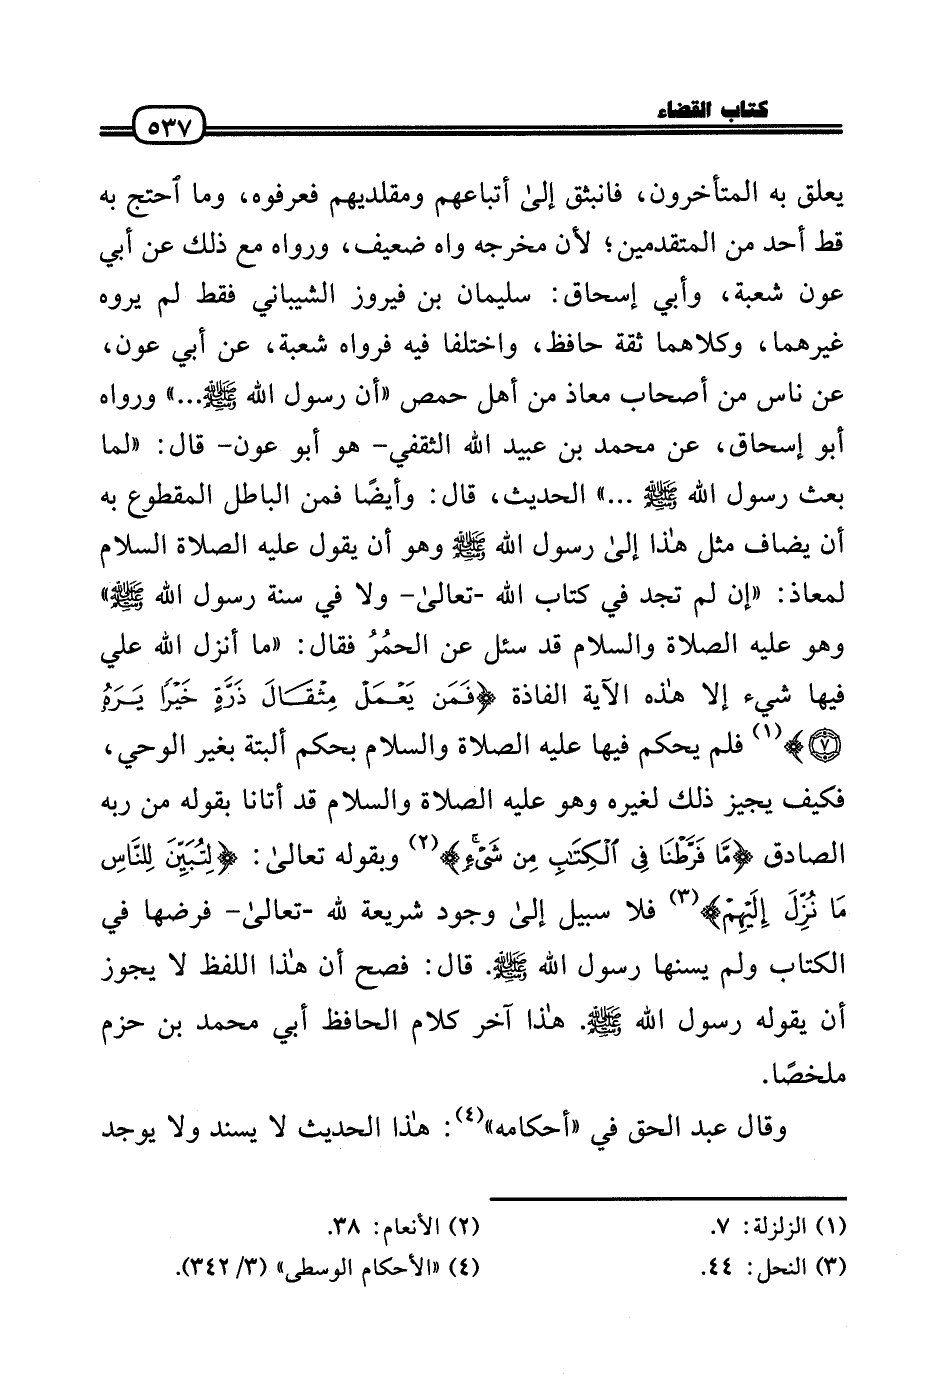 كتاب القضاء
٥٣٧
يعلق به المتأخرون، فانبثق إلىٰ أتباعهم ومقلديهم فعرفوه، وما ٱحتج به
قط أحد من المتقدمين؛ لأن مخرجه واه ضعيف، ورواه مع ذلك عن أبي
عون شعبة، وأبي إسحاق: سليمان بن فيروز الشيباني فقط لم يروه
غيرهما، وكلاهما ثقة حافظ، واختلفا فيه فرواه شعبة، عن أبي عون،
عن ناس من أصحاب معاذ من أهل حمص «أن رسول الله ﷺ...» ورواه
أبو إسحاق، عن محمد بن عبيد الله الثقفي- هو أبو عون- قال: «لما
بعث رسول الله ﷺ ...» الحديث، قال: وأيضًا فمن الباطل المقطوع به
أن يضاف مثل هٰذا إلىٰ رسول الله ﷺ وهو أن يقول عليه الصلاة السلام
لمعاذ: «إن لم تجد في كتاب الله -تعالىٰ- ولا في سنة رسول الله ﷺ»
وهو عليه الصلاة والسلام قد سئل عن الحمُرُ فقال: «ما أنزل الله علي
فيها شيء إلا هٰذه الآية الفاذة ﴿فَمَن يَعْمَلْ مِثْقَالَ ذَرَّةٍ خَيْرًا يَرَهُ
٧﴾(١) فلم يحكم فيها عليه الصلاة والسلام بحكم ألبتة بغير الوحي،
فكيف يجيز ذلك لغيره وهو عليه الصلاة والسلام قد أتانا بقوله من ربه
الصادق ﴿مَّا فَرَّطْنَا فِى ٱلْكِتَٰبِ مِن شَىْءٍ﴾(٢) وبقوله تعالىٰ: ﴿لِتُبَيِّنَ لِلنَّاسِ
مَا نُزِّلَ إِلَيْهِمْ﴾(٣) فلا سبيل إلىٰ وجود شريعة لله -تعالىٰ- فرضها في
الكتاب ولم يسنها رسول الله ﷺ. قال: فصح أن هٰذا اللفظ لا يجوز
أن يقوله رسول الله ﷺ. هٰذا آخر كلام الحافظ أبي محمد بن حزم
ملخصًا.
وقال عبد الحق في «أحكامه»(٤): هٰذا الحديث لا يسند ولا يوجد
(١) الزلزلة: ٧. (٢) الأنعام: ٣٨.
(٣) النحل: ٤٤. (٤) «الأحكام الوسطى» (٣/ ٣٤٢).